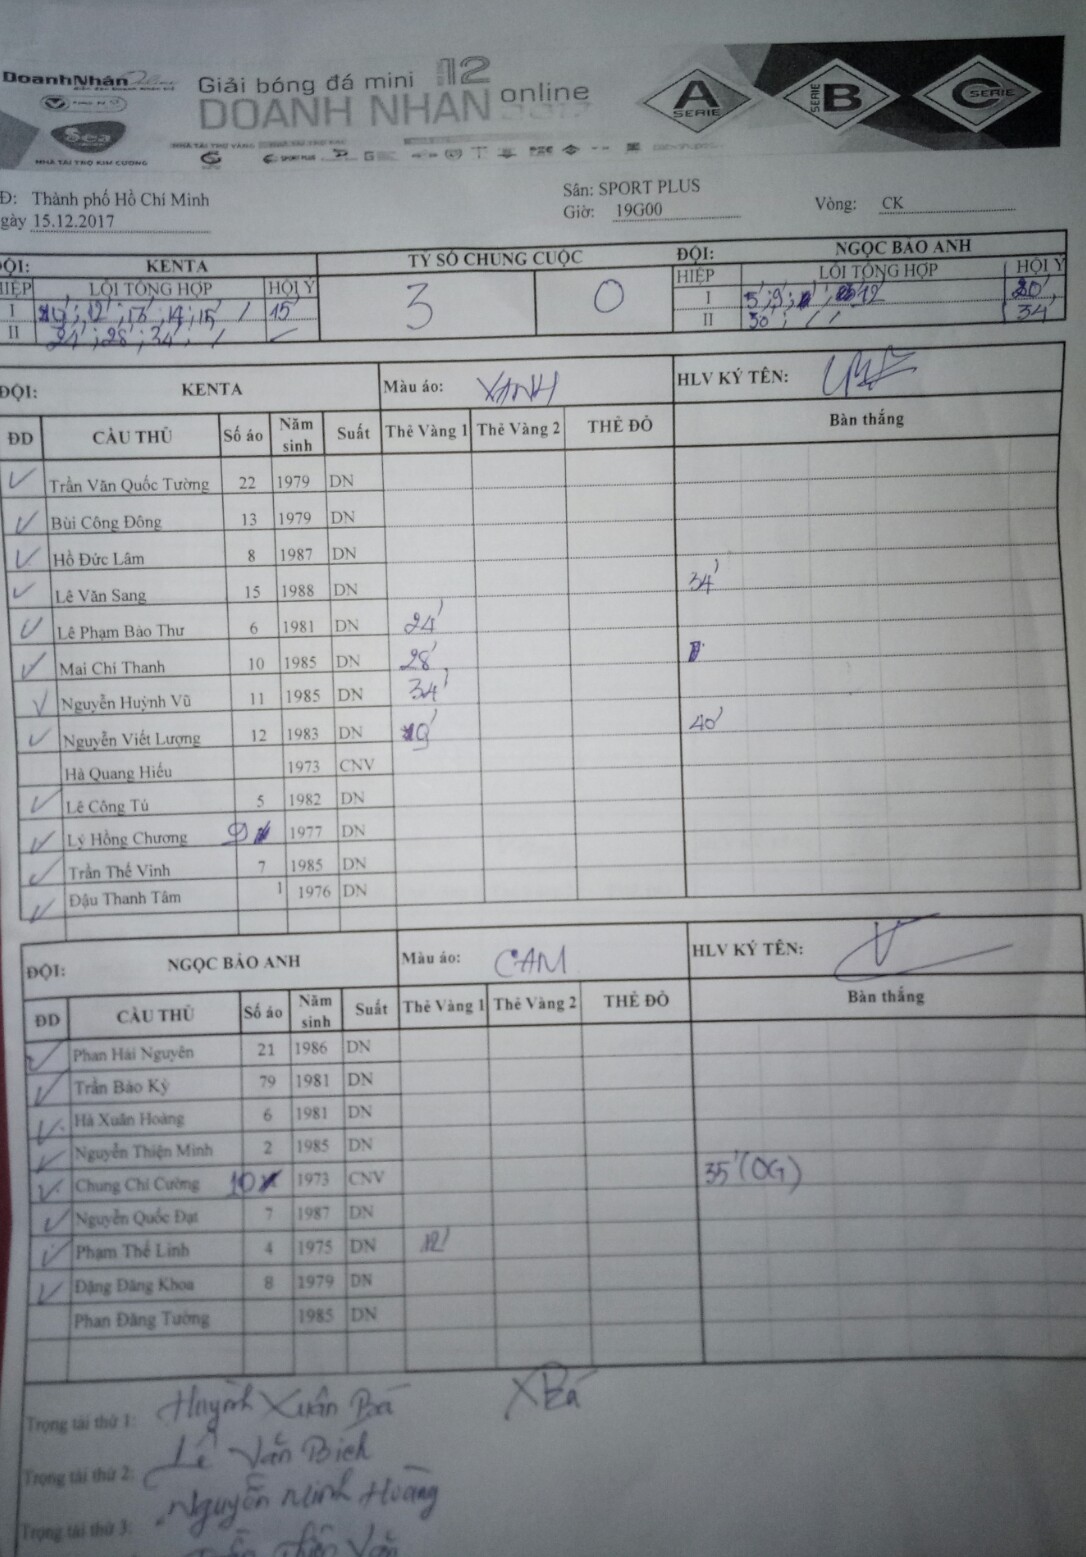 DoanhNhân Online
Sea
NHÀ TÀI TRỢ KIM CƯƠNG
Giải bóng đá mini 12
DOANH NHÂN online
2017
NHÀ TÀI TRỢ VÀNG
SPORT PLUS
A SERIE
SERIE B
C SERIE
Đ: Thành phố Hồ Chí Minh
gày 15.12.2017
Sân: SPORT PLUS
Giờ: 19G00
Vòng: CK
ĐỘI: KENTA TỶ SỐ CHUNG CUỘC ĐỘI: NGỌC BẢO ANH
HIỆP LỖI TỔNG HỢP HỘI Ý 3 0 HIỆP LỖI TỔNG HỢP HỘI Ý
I 9'; 12'; 13'; 14'; 15' / 15' I 5'; 9'; 12' 20'
II 24'; 28'; 34'; / II 30'; / / 34'
ĐỘI: KENTA Màu áo: XANH HLV KÝ TÊN:
ĐD CẦU THỦ Số áo Năm sinh Suất Thẻ Vàng 1 Thẻ Vàng 2 THẺ ĐỎ Bàn thắng
Trần Văn Quốc Tường 22 1979 DN
Bùi Công Đông 13 1979 DN
Hồ Đức Lâm 8 1987 DN
Lê Văn Sang 15 1988 DN 34'
Lê Phạm Bảo Thư 6 1981 DN 24'
Mai Chí Thanh 10 1985 DN 28'
Nguyễn Huỳnh Vũ 11 1985 DN 34'
Nguyễn Viết Lượng 12 1983 DN 9' 40'
Hà Quang Hiếu 1973 CNV
Lê Công Tú 5 1982 DN
Lý Hồng Chương 9 1977 DN
Trần Thế Vinh 7 1985 DN
Đậu Thanh Tâm 1 1976 DN
ĐỘI: NGỌC BẢO ANH Màu áo: CAM HLV KÝ TÊN:
ĐD CẦU THỦ Số áo Năm sinh Suất Thẻ Vàng 1 Thẻ Vàng 2 THẺ ĐỎ Bàn thắng
Phan Hải Nguyên 21 1986 DN
Trần Bảo Kỳ 79 1981 DN
Hà Xuân Hoàng 6 1981 DN
Nguyễn Thiện Minh 2 1985 DN
Chung Chí Cường 10 1973 CNV 35' (OG)
Nguyễn Quốc Đạt 7 1987 DN
Phạm Thế Linh 4 1975 DN 12'
Đặng Đăng Khoa 8 1979 DN
Phan Đăng Tường 1985 DN
Trọng tài thứ 1: Huỳnh Xuân Bá XBá
Trọng tài thứ 2: Lê Văn Bích
Trọng tài thứ 3: Nguyễn Minh Hoàng